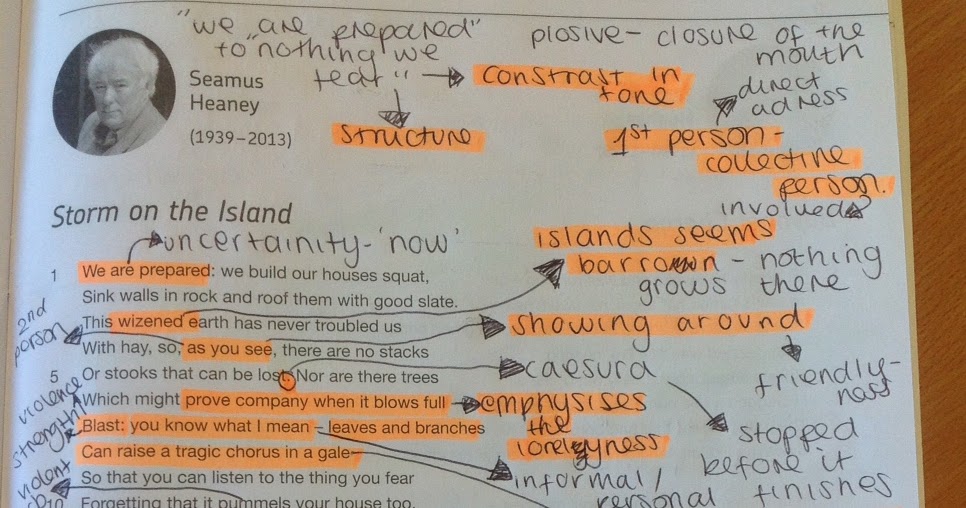 "we are prepared"
to "nothing we
fear"
constrast in
tone
structure
plosive - closure of the
mouth
direct
adress
1st person -
collective
person.
involved
Seamus
Heaney
(1939–2013)
Storm on the Island
uncertainity - 'now'
islands seems
barrown - nothing
grows there
1 We are prepared: we build our houses squat,
Sink walls in rock and roof them with good slate.
2nd
person
This wizened earth has never troubled us
showing around
With hay, so, as you see, there are no stacks
friendly-
ness
5 Or stooks that can be lost. Nor are there trees
caesura
stopped
before it
finishes
violence
strength
Which might prove company when it blows full
emphysises
the
lonelyness
Blast: you know what I mean – leaves and branches
Can raise a tragic chorus in a gale
informal /
personal
violent
So that you can listen to the thing you fear
10 Forgetting that it pummels your house too.